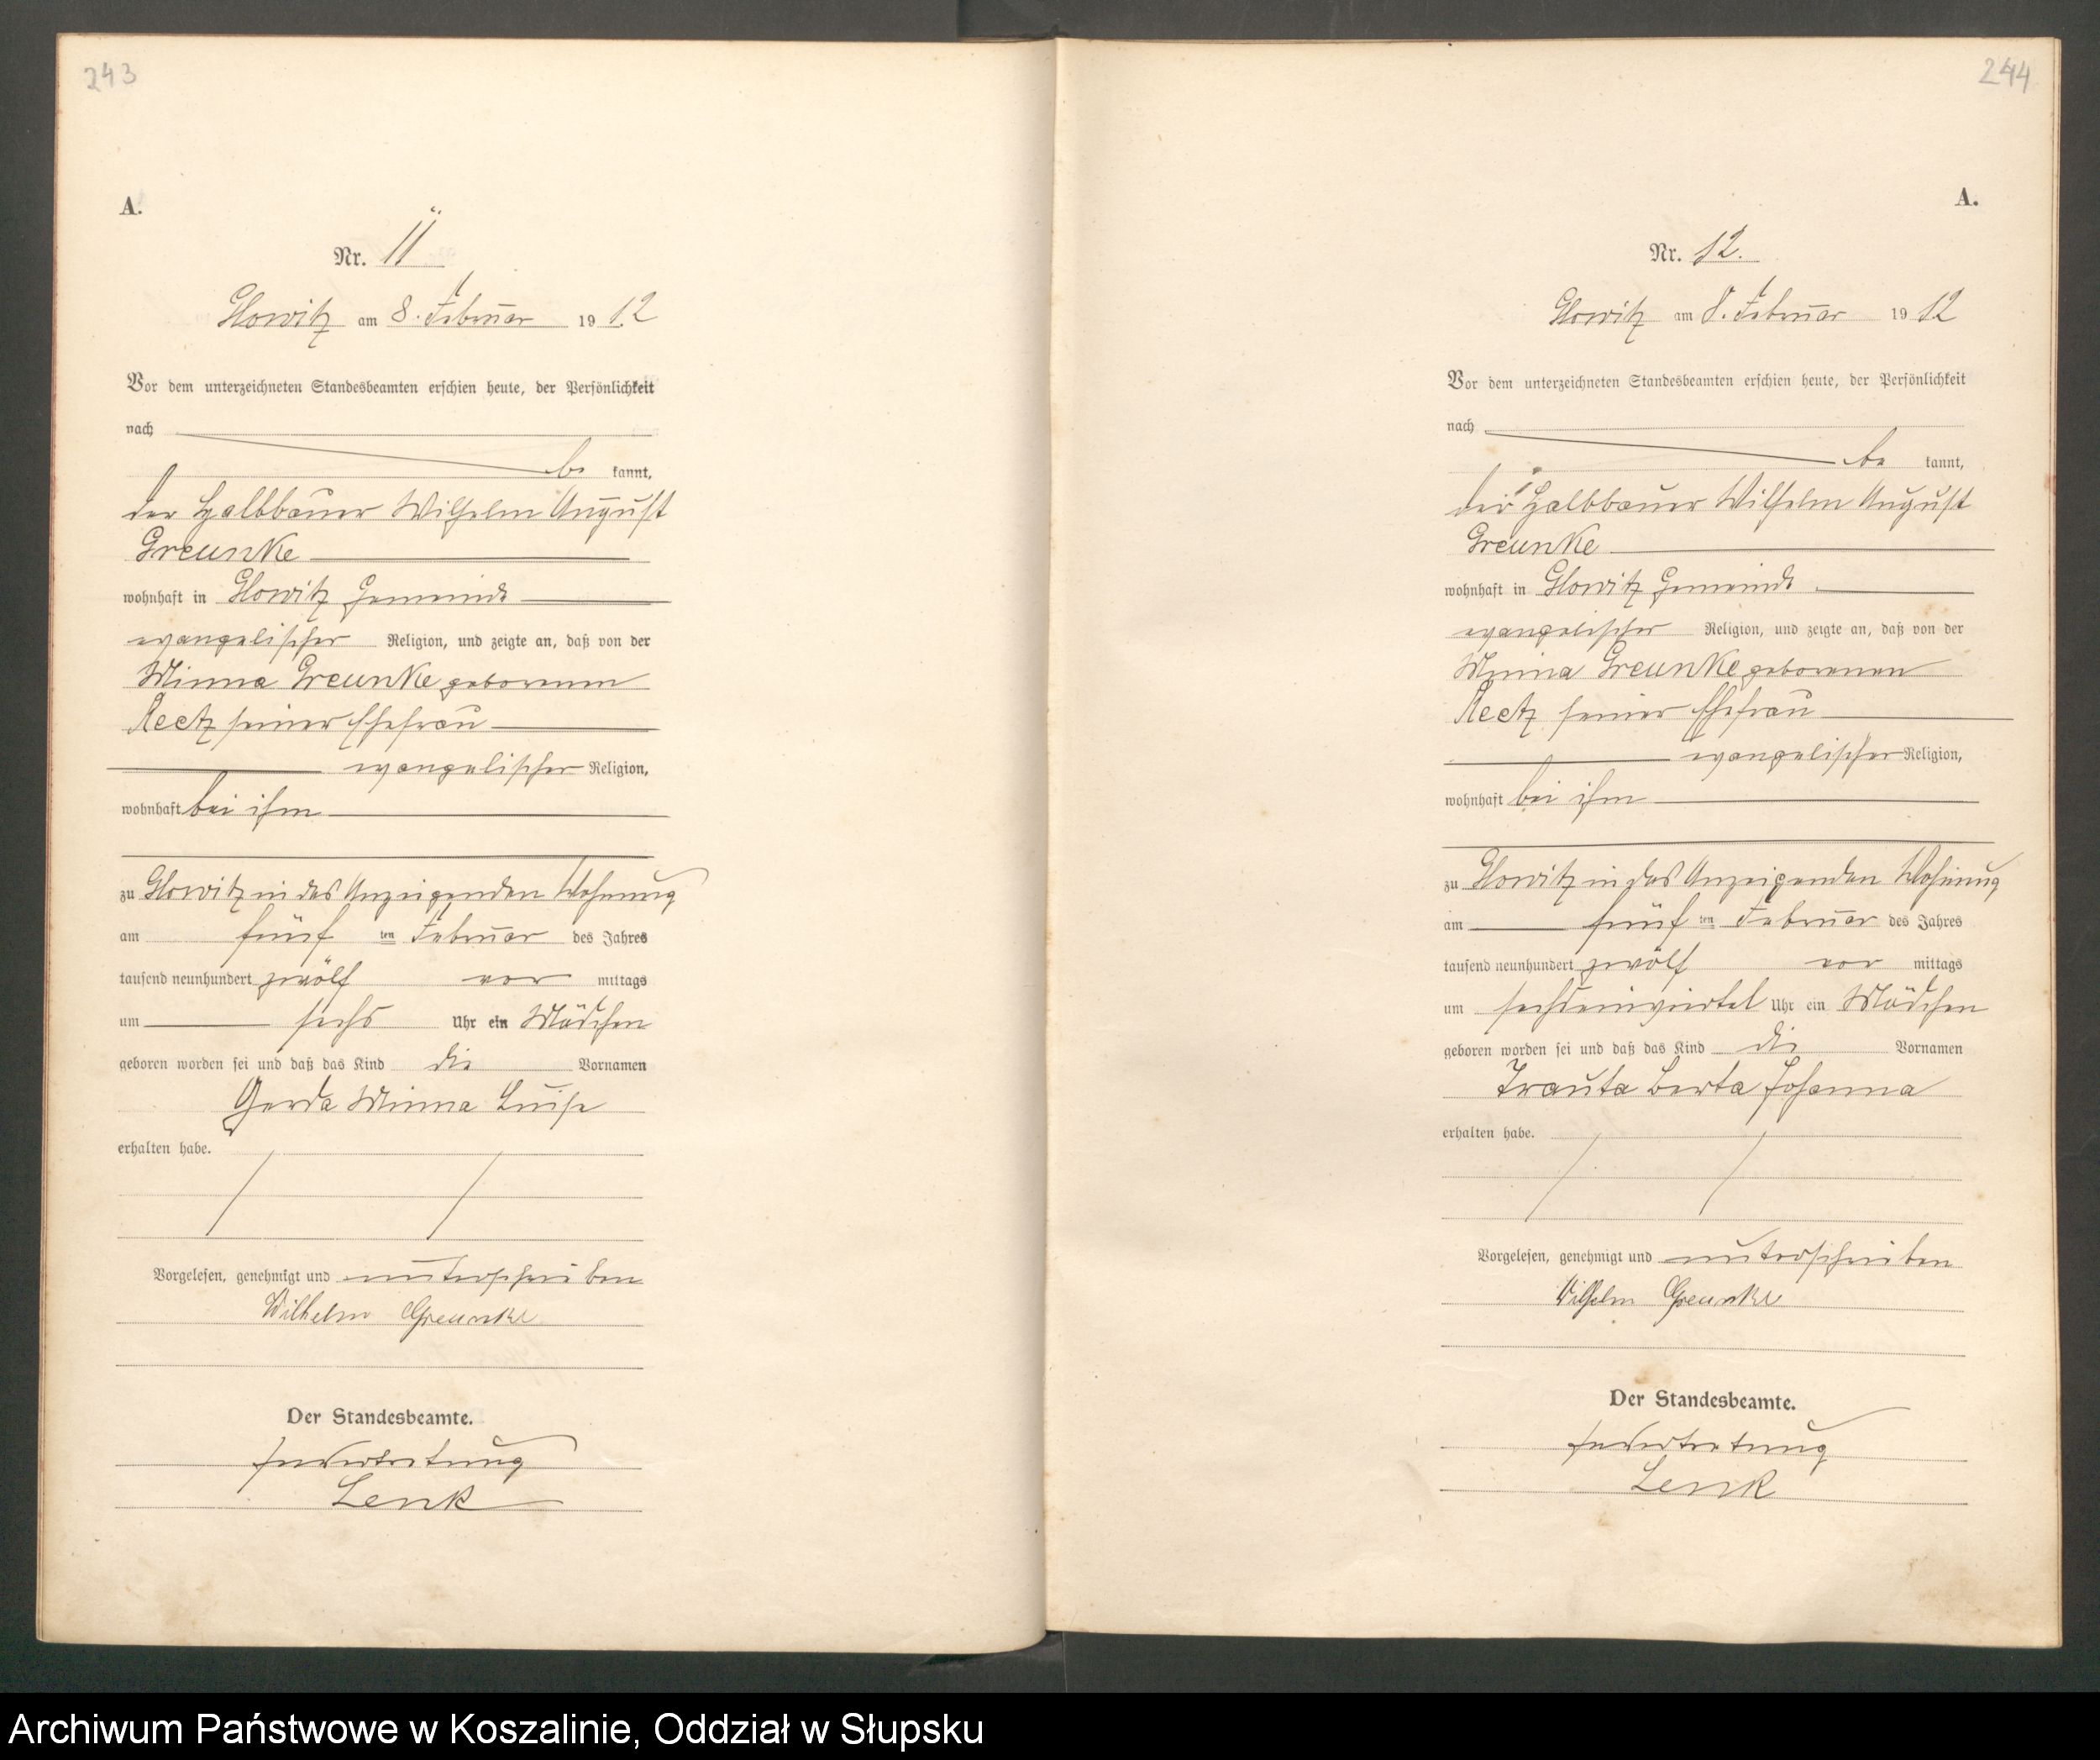 243
A.
Nr. 11
Glowitz am 8. Februar 1912
Vor dem unterzeichneten Standesbeamten erschien heute, der Persönlichkeit
nach
be kannt,
der Halbbauer Wilhelm August
Greunke
wohnhaft in Glowitz Gemeinde
evangelischer Religion, und zeigte an, daß von der
Minna Greunke geborenen
Reetz seiner Ehefrau
evangelischer Religion,
wohnhaft bei ihm
zu Glowitz in des Anzeigenden Wohnung
am fünf ten Februar des Jahres
tausend neunhundert zwölf vor mittags
um sechs Uhr ein Mädchen
geboren worden sei und daß das Kind die Vornamen
Gerda Minna Luise
erhalten habe.
Vorgelesen, genehmigt und unterschrieben
Wilhelm Greunke
Der Standesbeamte.
In Vertretung
Lenk
244
A.
Nr. 12.
Glowitz am 8. Februar 1912
Vor dem unterzeichneten Standesbeamten erschien heute, der Persönlichkeit
nach
be kannt,
der Halbbauer Wilhelm August
Greunke
wohnhaft in Glowitz Gemeinde
evangelischer Religion, und zeigte an, daß von der
Minna Greunke geborenen
Reetz seiner Ehefrau
evangelischer Religion,
wohnhaft bei ihm
zu Glowitz in des Anzeigenden Wohnung
am fünf ten Februar des Jahres
tausend neunhundert zwölf vor mittags
um sechseinviertel Uhr ein Mädchen
geboren worden sei und daß das Kind die Vornamen
Trauta Berta Johanna
erhalten habe.
Vorgelesen, genehmigt und unterschrieben
Wilhelm Greunke
Der Standesbeamte.
In Vertretung
Lenk
Archiwum Państwowe w Koszalinie, Oddział w Słupsku